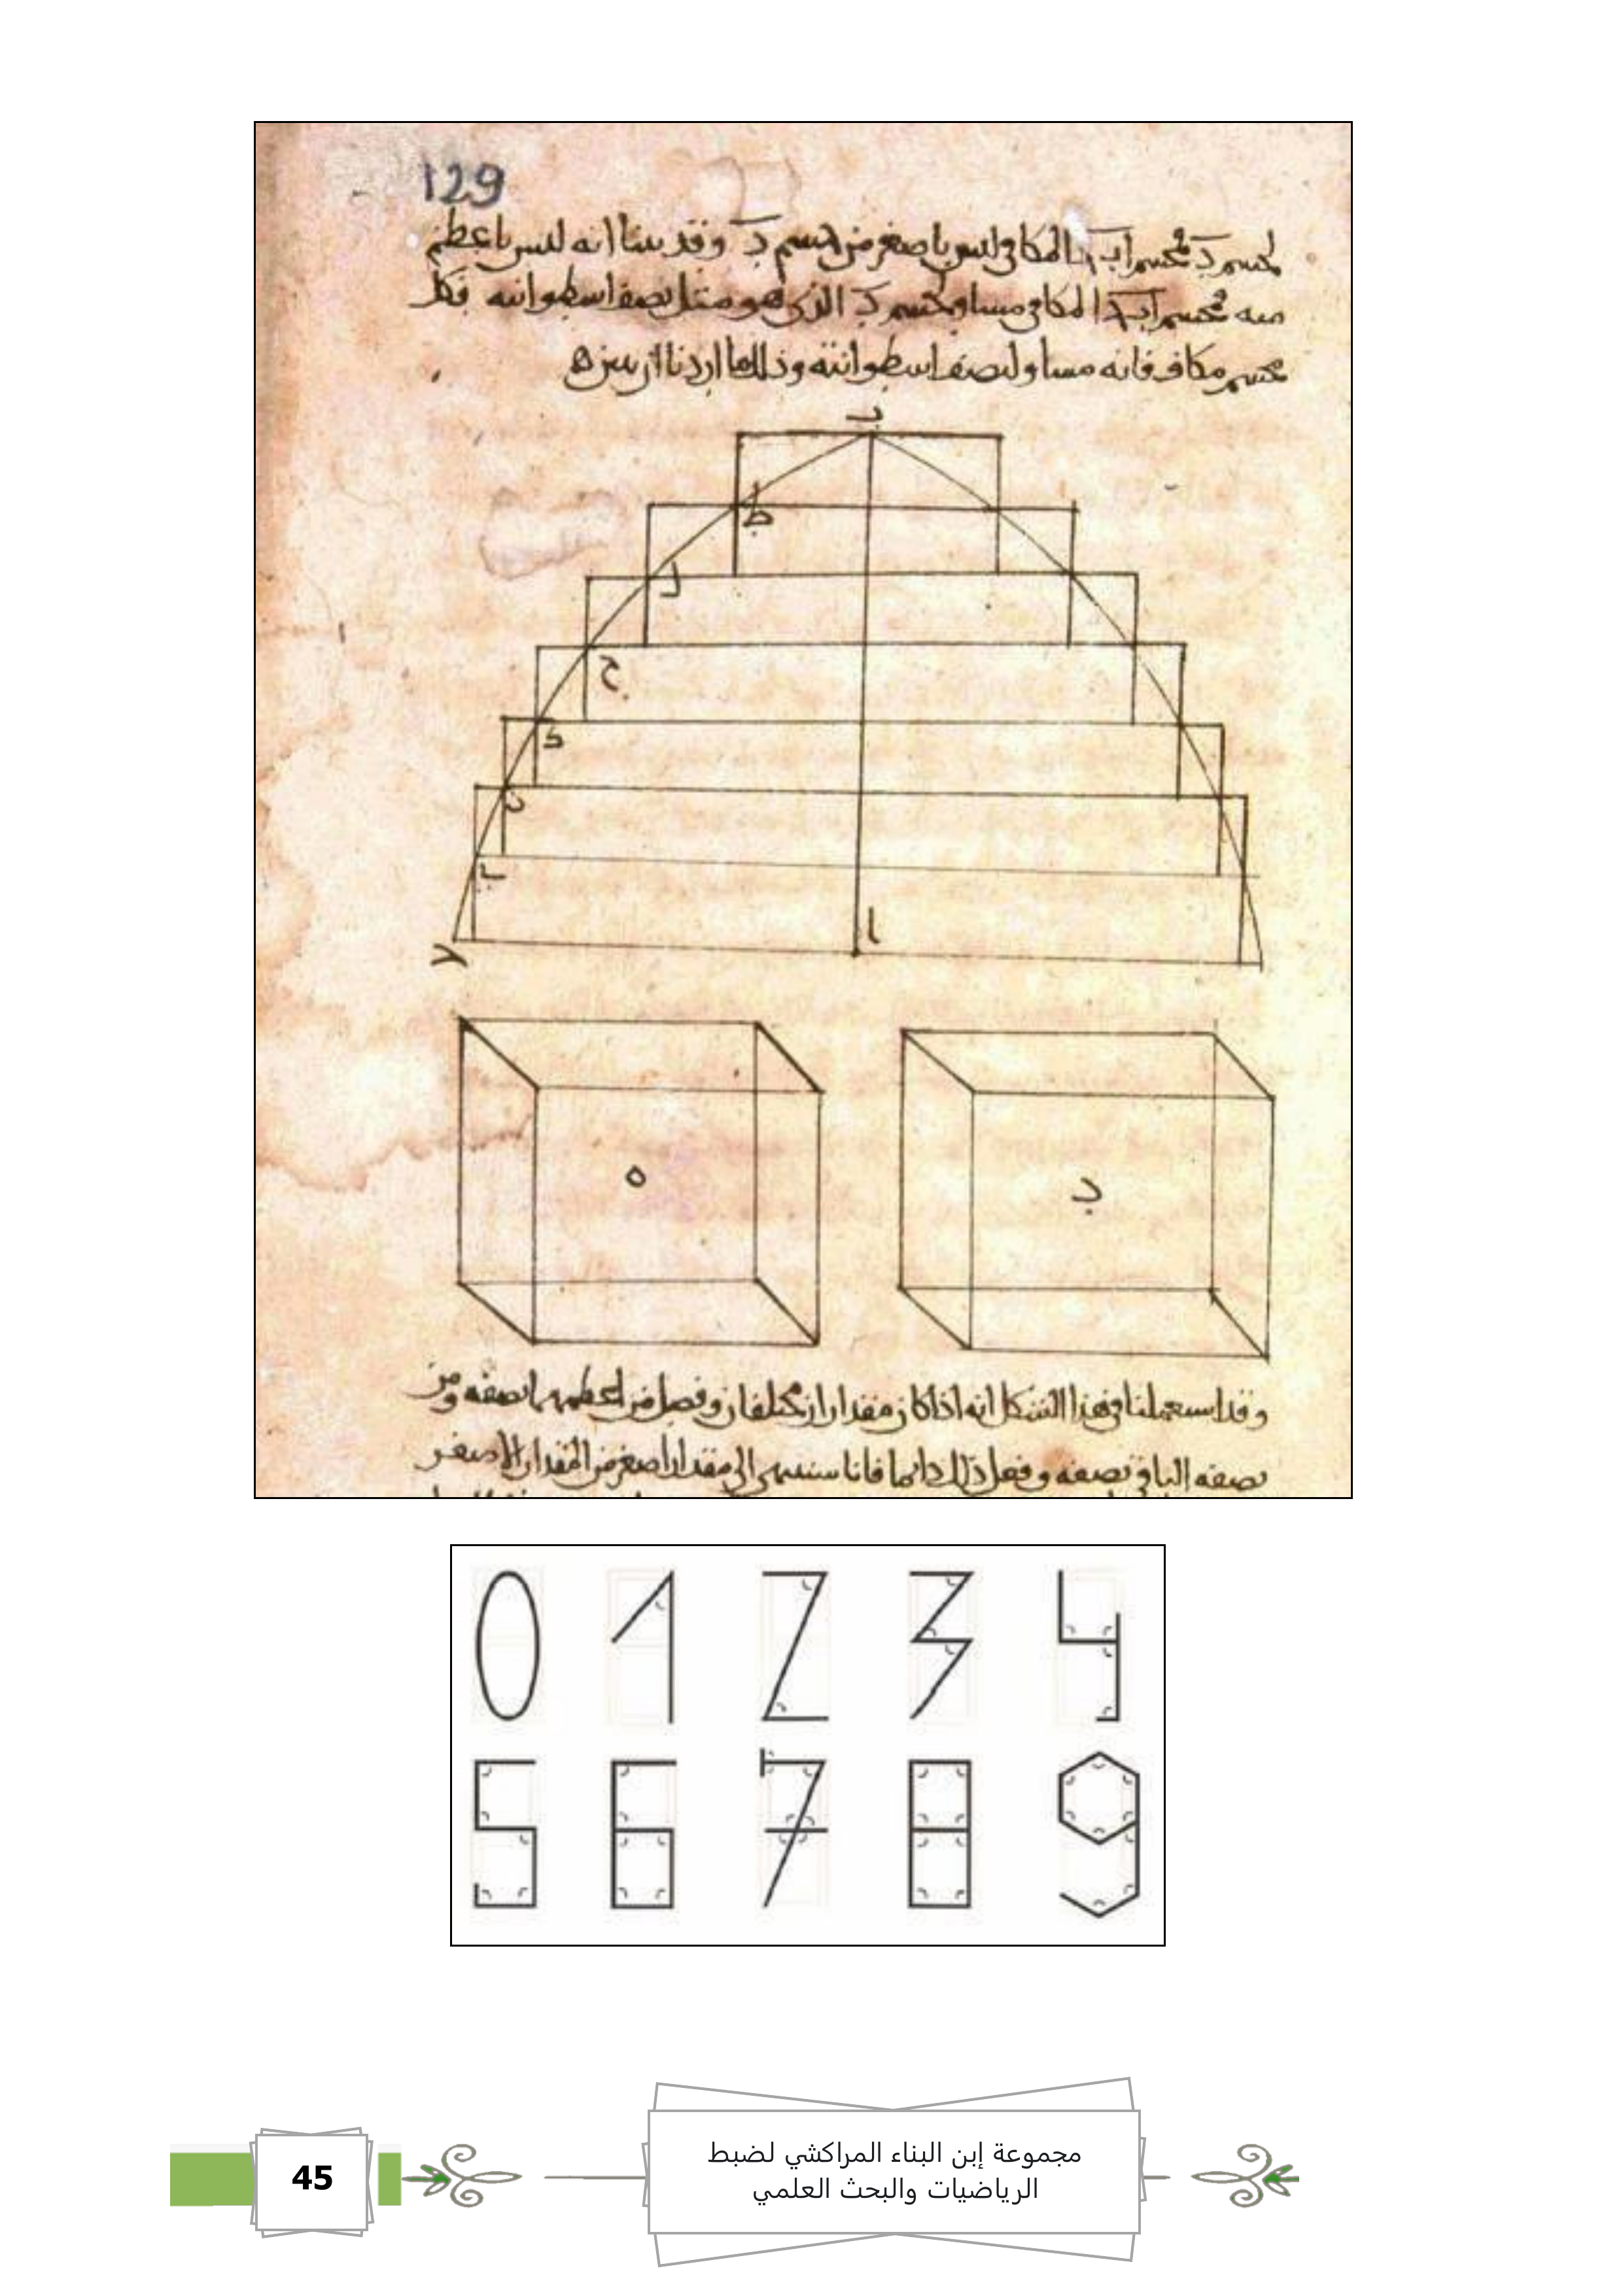 129
لمجسم د مجسم اب د المكافى ليس باصغر من مجسم د وقد بينا انه ليس باعظم
منه فمجسم اب د المكافى مساو لمجسم د الذى هو مثل نصف اسطوانته فكل
مجسم مكاف فانه مساو لنصف اسطوانته وذلك ما اردنا ان نبين
ب
ط
ل
ح
ب
ا
ه
وقد استعملنا فى هذا الشكل انه اذا كان مقداران مختلفان وفصل من اعظمهما نصفه ومن
نصفه الباقى نصفه وفعل ذلك دائما فانا سننتهى الى مقدار اصغر من المقدار الاصغر
0 1 2 3 4
5 6 7 8 9
45
مجموعة إبن البناء المراكشي لضبط
الرياضيات والبحث العلمي